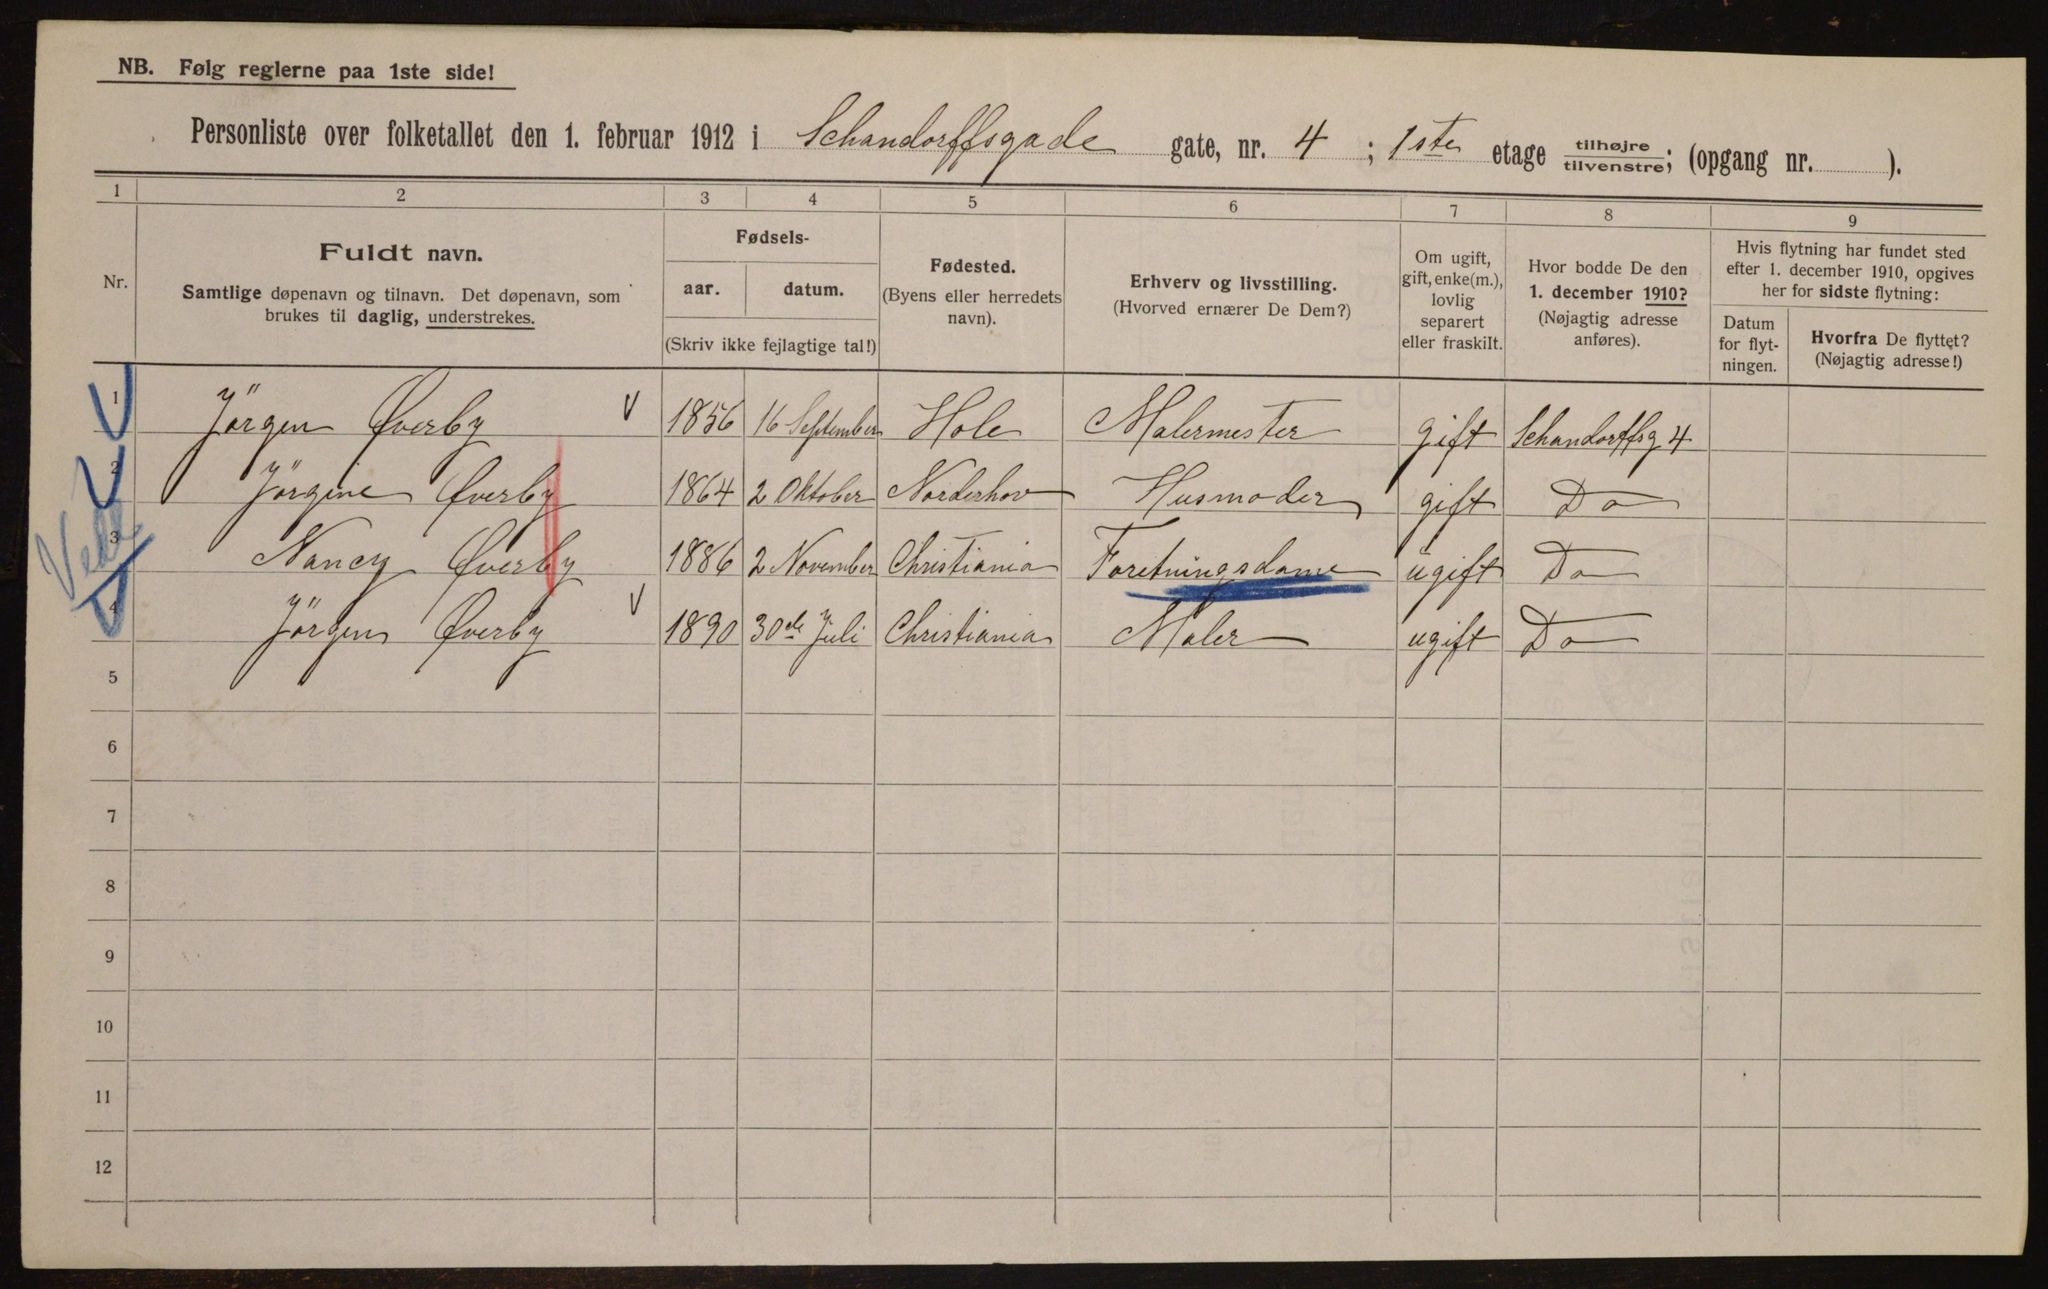 NB. Følg reglerne paa 1ste side!
Personliste over folketallet den 1. februar 1912 i Schandorffsgade gate, nr. 4 ; 1ste etage tilhøjre tilvenstre; (opgang nr. ).
1 2 3 4 5 6 7 8 9
Nr.
Fuldt navn.
Samtlige døpenavn og tilnavn. Det døpenavn, som
brukes til daglig, understrekes.
Fødsels-
aar. datum.
(Skriv ikke fejlagtige tal!)
Fødested.
(Byens eller herredets
navn).
Erhverv og livsstilling.
(Hvorved ernærer De Dem?)
Om ugift,
gift, enke(m.),
lovlig
separert
eller fraskilt.
Hvor bodde De den
1. december 1910?
(Nøjagtig adresse
anføres).
Hvis flytning har fundet sted
efter 1. december 1910, opgives
her for sidste flytning:
Datum
for flyt-
ningen.
Hvorfra De flyttet?
(Nøjagtig adresse!)
1 Jörgen Øverby V 1856 16 September Hole Malermester gift Schandorffsg 4
2 Jörgine Øverby 1864 2 Oktober Norderhov Husmoder gift Do
3 Nancy Øverby 1886 2 November Christiania Foretningsdame ugift Do
4 Jörgen Øverby V 1890 30de Juli Christiania Maler ugift Do
5
6
7
8
9
10
11
12